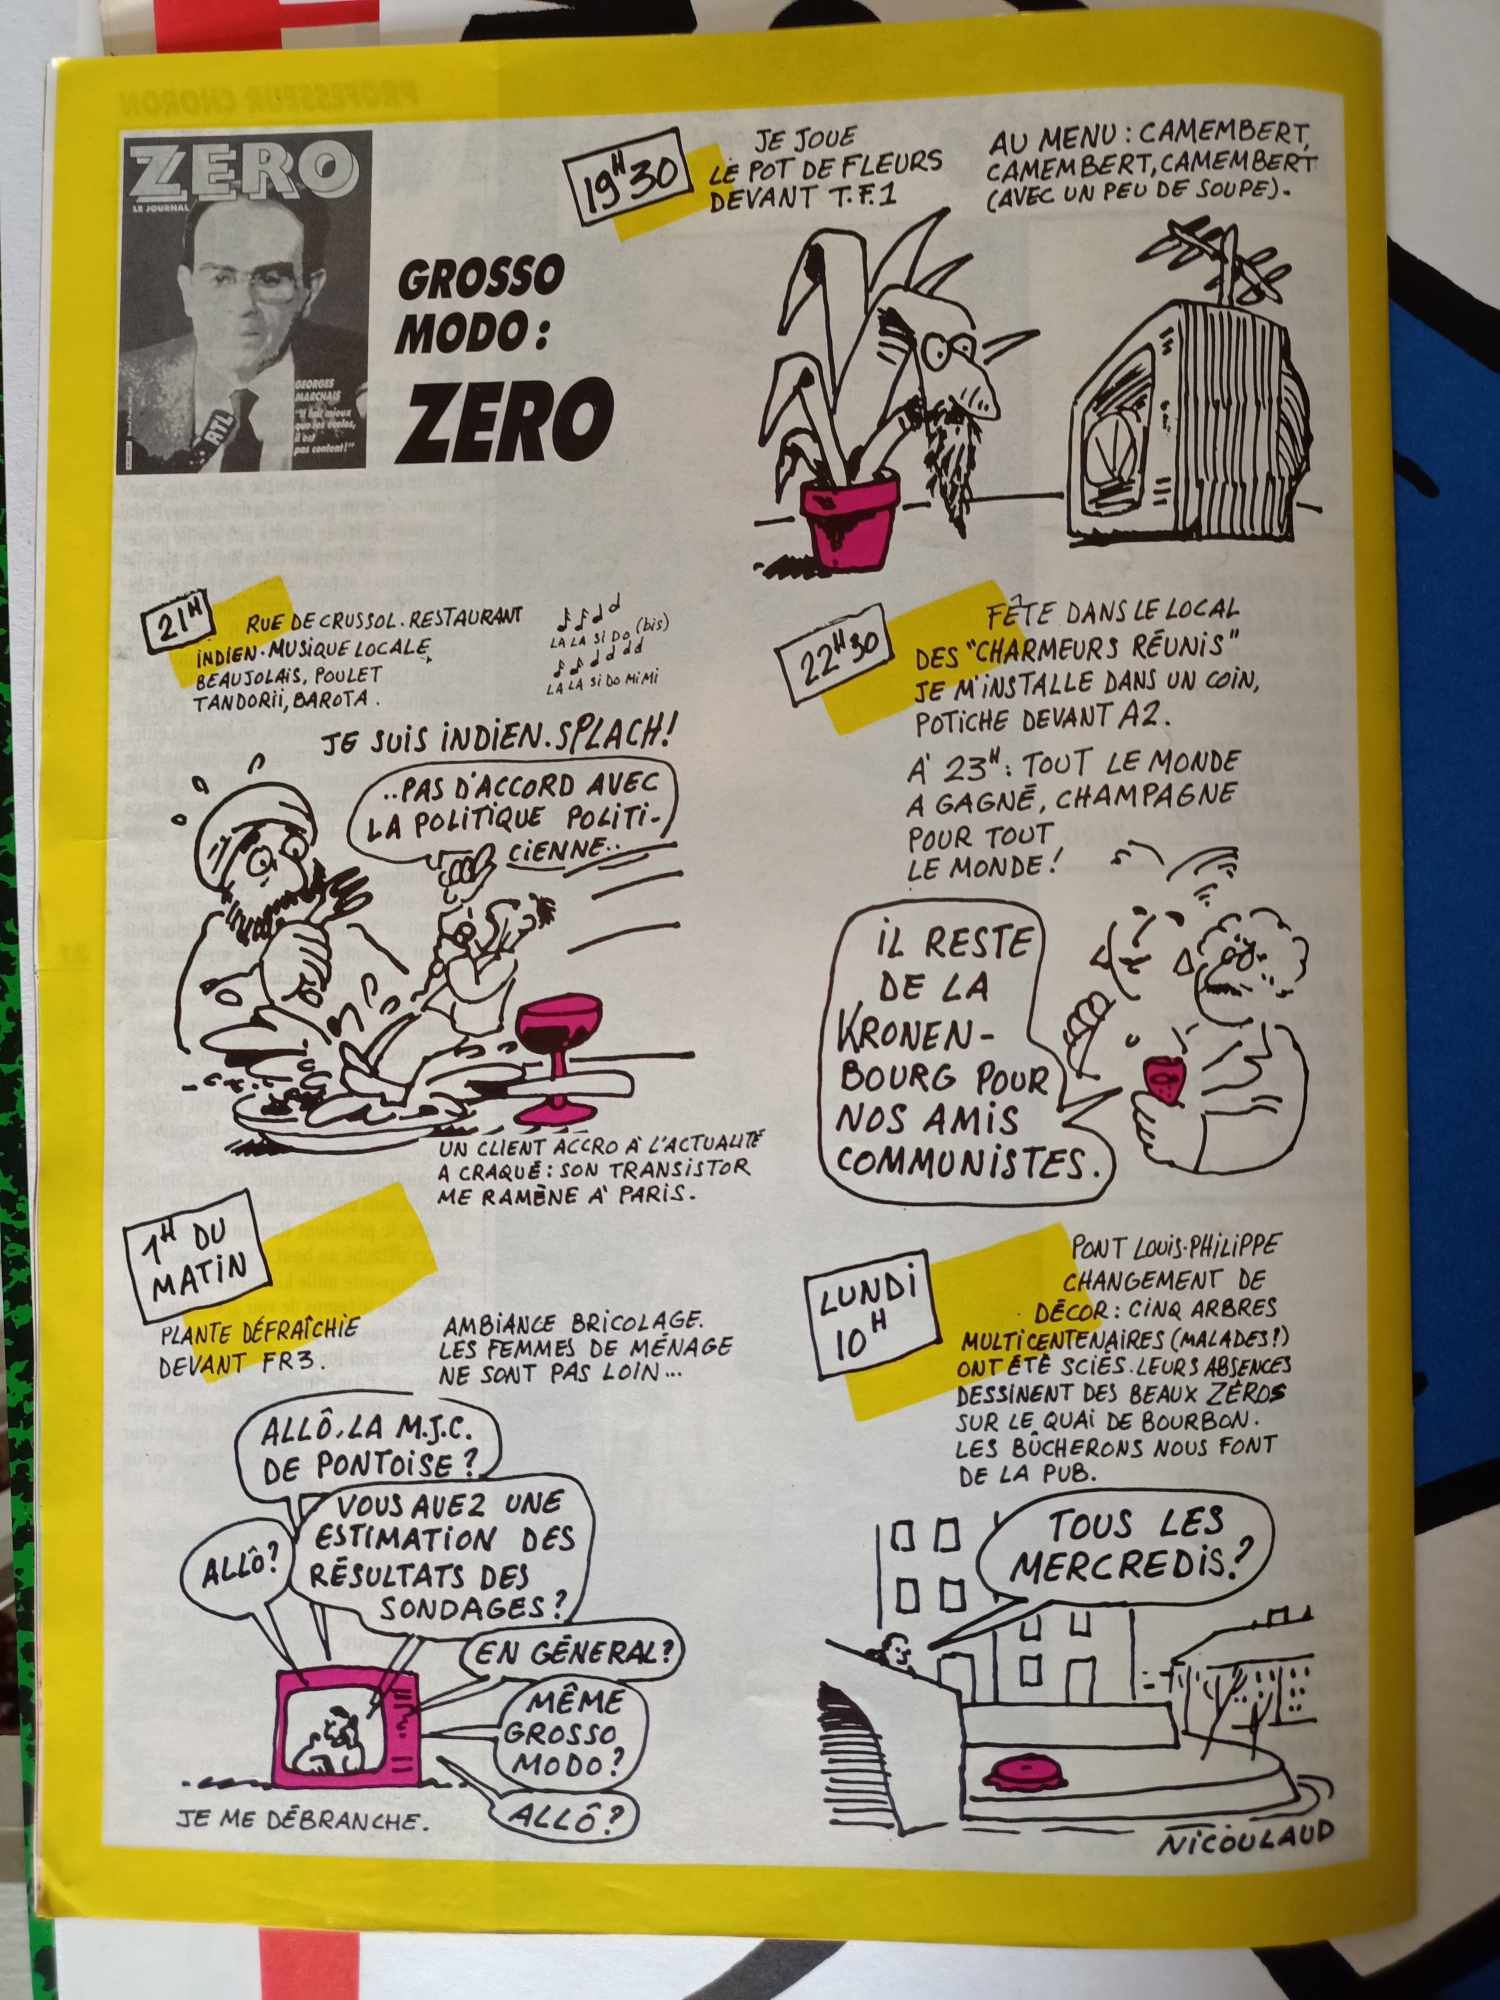 PROFESSEUR CHORON
ZERO
LE JOURNAL
RTL
GEORGES
MARCHAIS
"Il fait mieux
que les écoles,
il est
pas content!"
GROSSO
MODO:
ZERO
19H30
JE JOUE
LE POT DE FLEURS
DEVANT T.F.1
AU MENU: CAMEMBERT,
CAMEMBERT, CAMEMBERT
(AVEC UN PEU DE SOUPE).
21H
RUE DE CRUSSOL. RESTAURANT
INDIEN. MUSIQUE LOCALE,
BEAUJOLAIS, POULET
TANDORII, BAROTA.
LA LA SI DO (bis)
LA LA SI DO MI MI
JE SUIS INDIEN. SPLACH!
..PAS D'ACCORD AVEC
LA POLITIQUE POLITI-
CIENNE..
UN CLIENT ACCRO À L'ACTUALITÉ
A CRAQUÉ: SON TRANSISTOR
ME RAMÈNE À PARIS.
22H30
FÊTE DANS LE LOCAL
DES "CHARMEURS RÉUNIS"
JE M'INSTALLE DANS UN COIN,
POTICHE DEVANT A2.
À 23H: TOUT LE MONDE
A GAGNÉ, CHAMPAGNE
POUR TOUT
LE MONDE!
IL RESTE
DE LA
KRONEN-
BOURG POUR
NOS AMIS
COMMUNISTES.
1H DU
MATIN
PLANTE DÉFRAÎCHIE
DEVANT FR3.
AMBIANCE BRICOLAGE.
LES FEMMES DE MÉNAGE
NE SONT PAS LOIN...
ALLÔ, LA M.J.C.
DE PONTOISE?
VOUS AVEZ UNE
ESTIMATION DES
RÉSULTATS DES
SONDAGES?
ALLÔ?
EN GÉNERAL?
MÊME
GROSSO
MODO?
ALLÔ?
JE ME DÉBRANCHE.
LUNDI
10H
PONT LOUIS-PHILIPPE
CHANGEMENT DE
DÉCOR: CINQ ARBRES
MULTICENTENAIRES (MALADES?)
ONT ÉTÉ SCIÉS. LEURS ABSENCES
DESSINENT DES BEAUX ZÉROS
SUR LE QUAI DE BOURBON.
LES BÛCHERONS NOUS FONT
DE LA PUB.
TOUS LES
MERCREDIS?
NICOULAUD